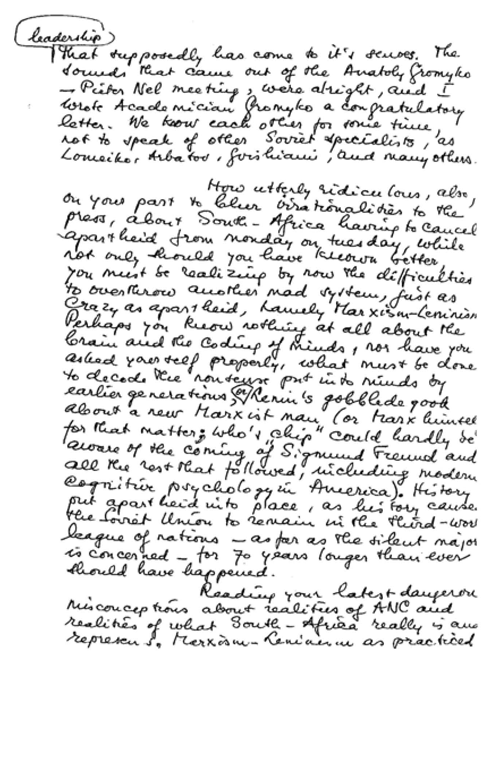 leadership)
that supposedly has come to it's senses. The
sounds that came out of the Anatoly Gromyko
- Pieter Nel meeting, were alright, and I
wrote Academician Gromyko a congratulatory
letter. We know each other for some time,
not to speak of other Soviet specialists, as
Lomeiko, Arbatov, Gvishiani, and many others.
How utterly ridiculous, also,
on your part to blur irrationalities to the
press, about South-Africa having to cancel
apartheid from monday on tuesday, while
not only should you have known better,
you must be realizing by now the difficulties
to overthrow another mad system, just as
crazy as apartheid, namely Marxism-Leninism
Perhaps you know nothing at all about the
brain and the coding of minds, nor have you
asked yourself properly, what must be done
to decode the nonsense put into minds by
earlier generations by Lenin's gobblide good
about a new Marxist man, (or Marx himsel
for that matter; who's "chip" could hardly be
aware of the coming of Sigmund Freund and
all the rest that followed, including modern
cognitive psychology in America). History
put apartheid into place, as history cause
the Soviet Union to remain in the third-wor
league of nations - as far as the silent major
is concerned - for 70 years longer than ever
should have happened.
Reading your latest dangerou
misconceptions about realities of ANC and
realities of what South-Africa really is and
represens, Marxism-Leninism as practiced